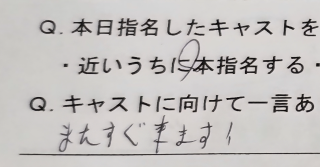 Q. 本日指名したキャストを
・近いうちに本指名する・
Q. キャストに向けて一言あ
またすぐ来ます!